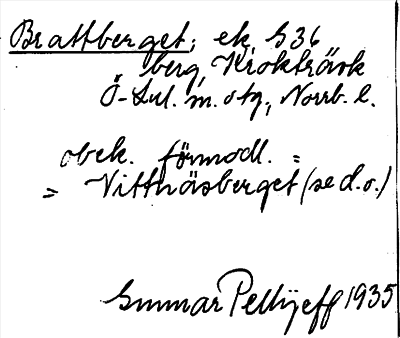 Brattberget; ek S36
berg, Krokträsk
Ö-Lul. m. o tg., Norrb. l.
obek. förmodl. =
= Vittnäsberget (se d. o.)
Gunnar Pellijeff 1935